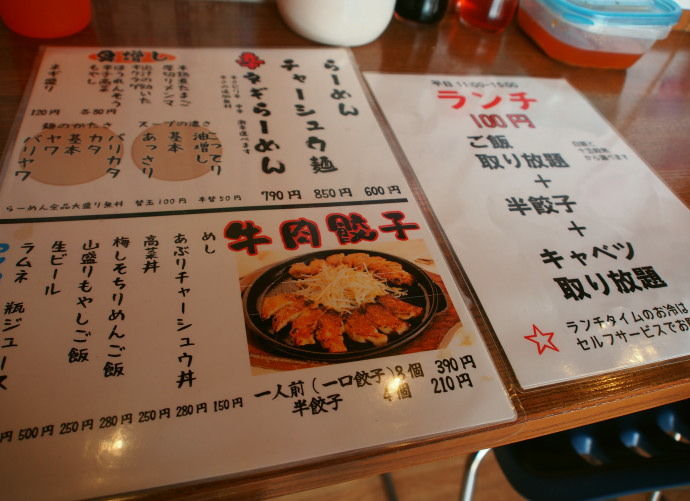 らーめん
チャーシュウ麺
ネギらーめん
600円
850円
790円
具増し
味付のりいた
キクラゲ
もやし
ねぎ盛り
各80円
120円
スープの濃さ
こってり
油増し
基本
あっさり
麺のかたさ
バリカタ
カタ
基本
ヤワ
バリヤワ
らーめん全品大盛り無料 替玉100円 半替50円
牛肉餃子
一人前(一口餃子)8個 390円
半餃子 4個 210円
めし
あぶりチャーシュウ丼
高菜丼
梅しそちりめんご飯
山盛りもやしご飯
生ビール
ラムネ 瓶ジュース
円 500円 250円 280円 250円 250円 280円 150円
平日 11:00-15:00
ランチ
100円
ご飯
取り放題
白飯と
から選べます
+
半餃子
+
キャベツ
取り放題
ランチタイムのお冷は
セルフサービスでお